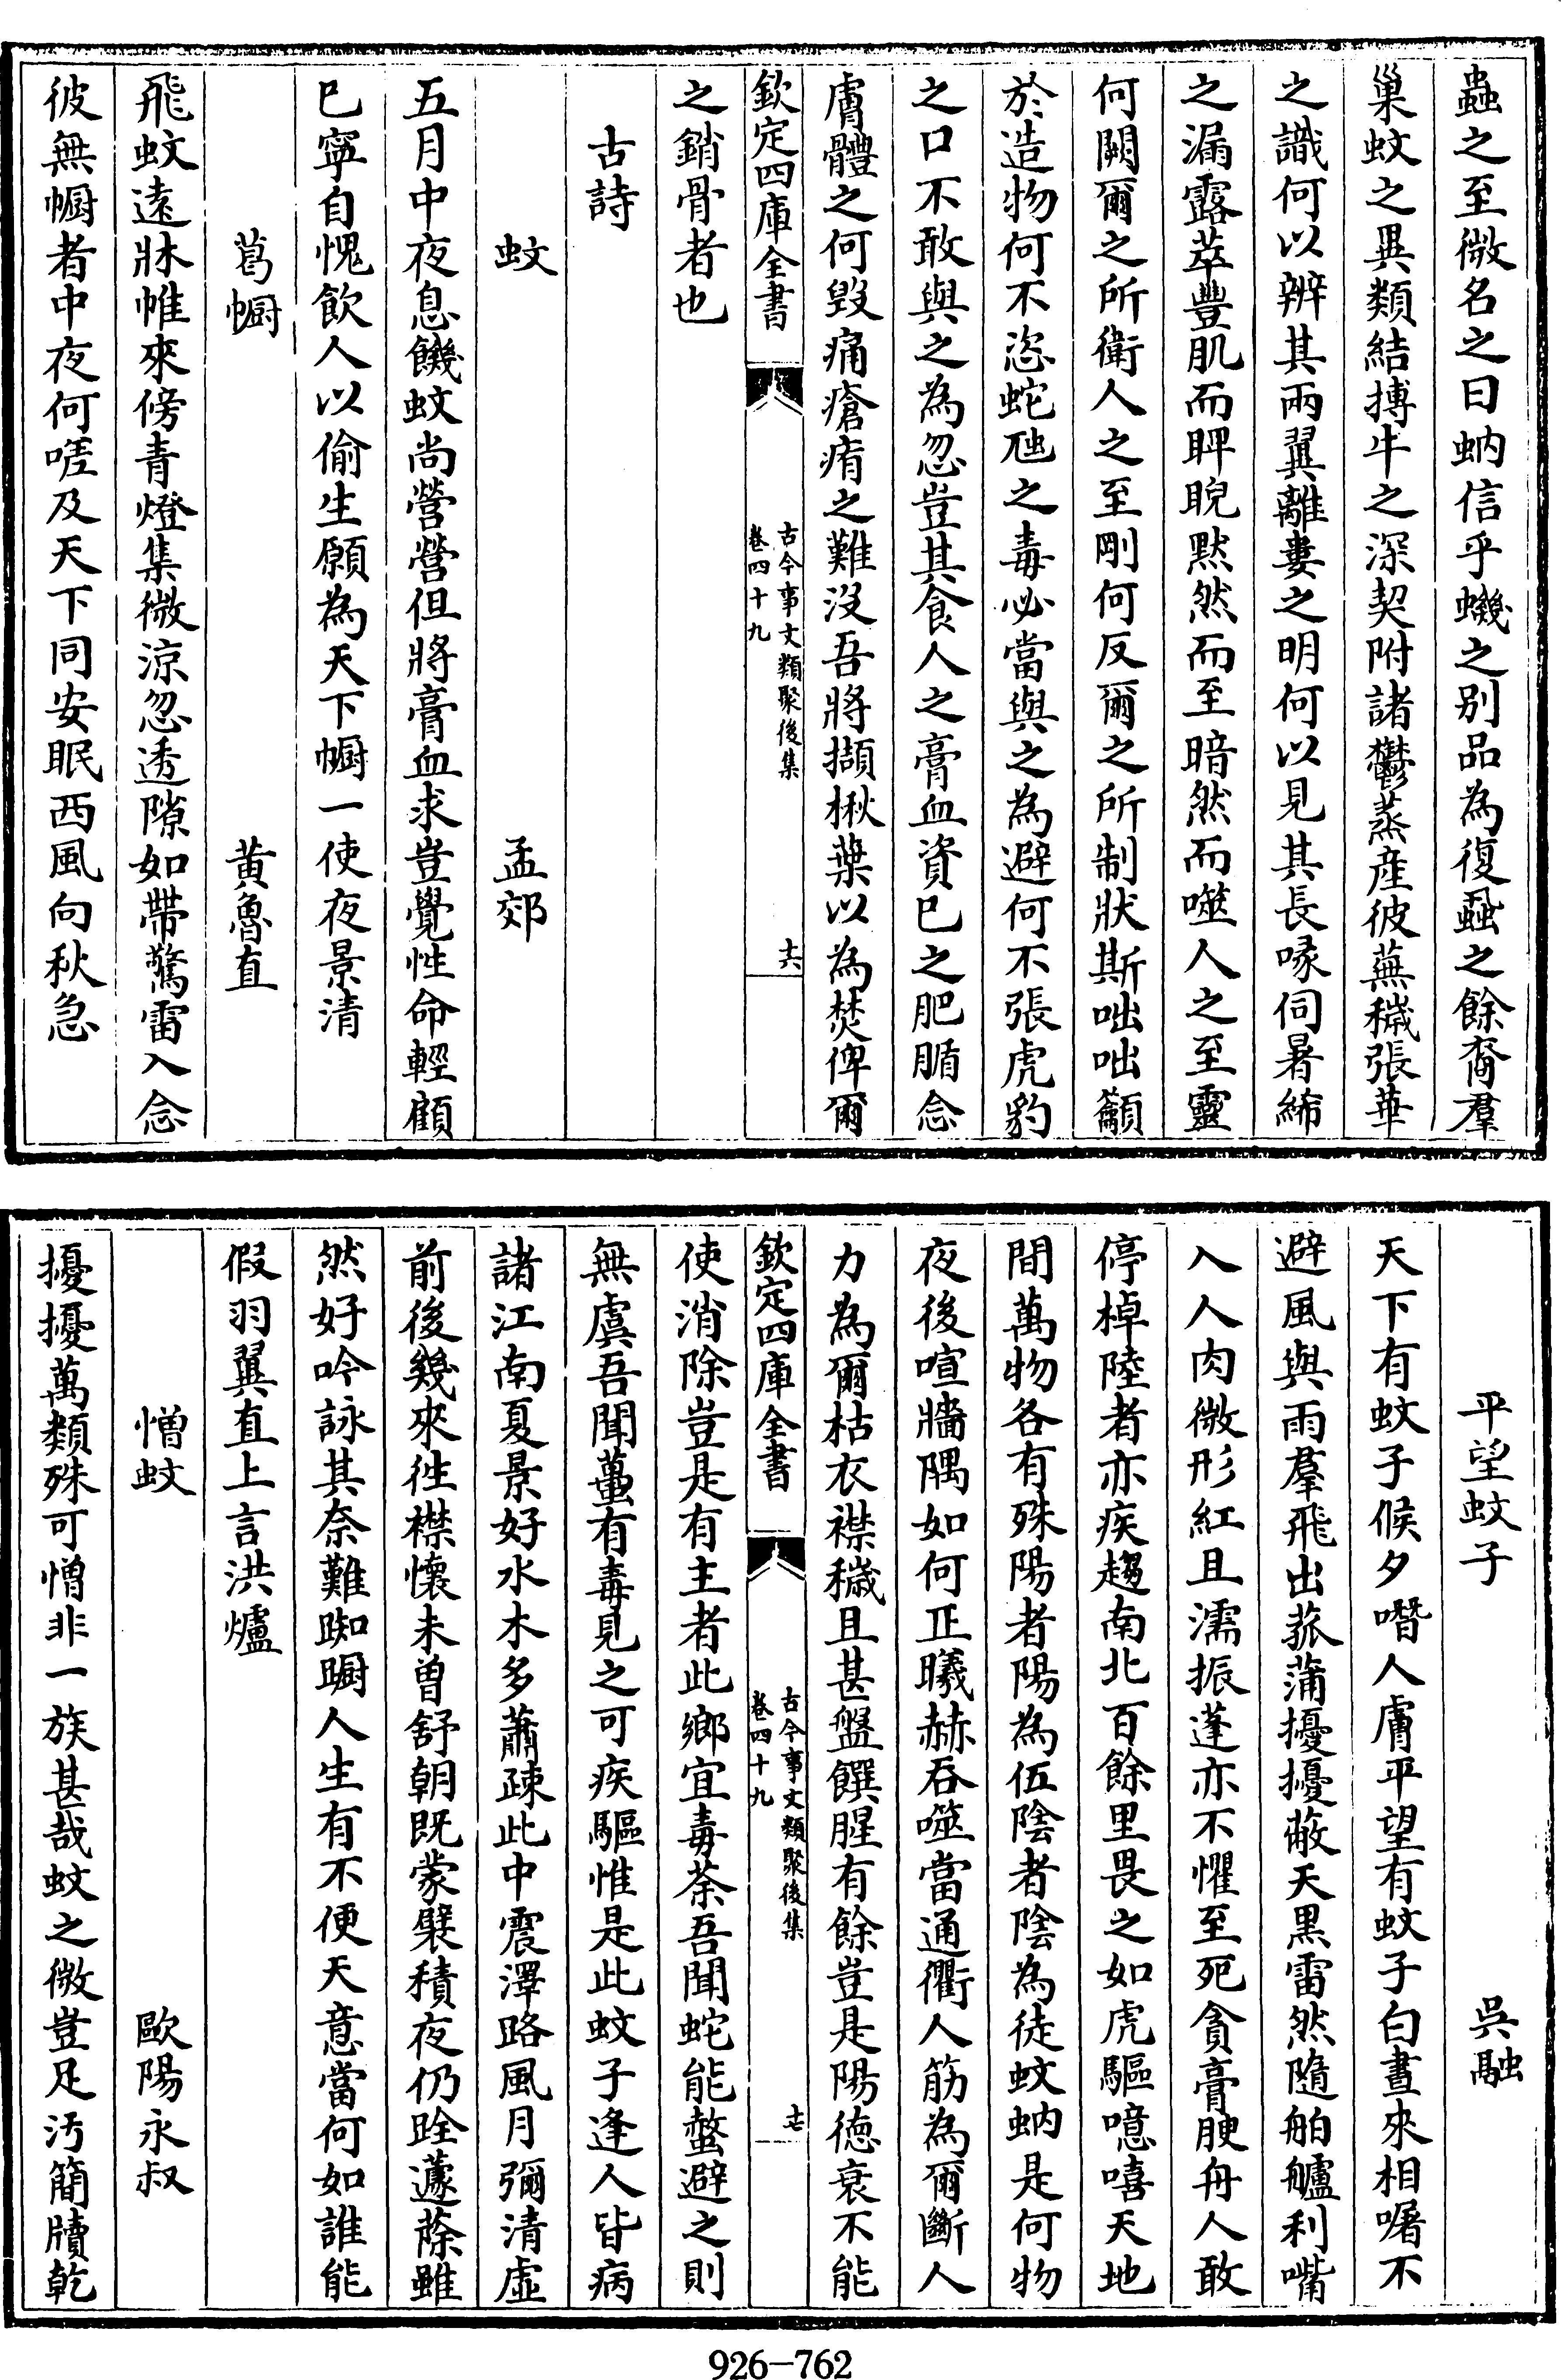 蟲之至微名之曰蚋信乎蟣之别品為復蝨之餘裔羣
巢蚊之異類結搏牛之深契附諸鬱蒸産彼蕪穢張華
之識何以辨其兩翼離婁之明何以見其長喙伺暑絺
之漏露萃豐肌而睥睨黙然而至暗然而噬人之至靈
何闕爾之所衛人之至剛何反爾之所制狀斯咄咄籲
於造物何不恣蛇虺之毒必當與之為避何不張虎豹
之口不敢與之為忽豈其食人之膏血資已之肥腯念
膚體之何毁痛瘡痏之難没吾將擷楸葉以為焚俾爾
欽定四庫全書
古今事文類聚後集
卷四十九
十六
之銷骨者也
古詩
蚊 孟郊
五月中夜息饑蚊尚營營但將膏血求豈覺性命輕顧
已寧自愧飲人以偷生願為天下㡡一使夜景清
葛㡡 黄魯直
飛蚊遶牀帷來傍青燈集微涼忽透隙如帶驚雷入念
彼無㡡者中夜何嗟及天下同安眠西風向秋急
平望蚊子 吳融
天下有蚊子候夕噆人膚平望有蚊子白晝來相屠不
避風與雨羣飛出菰蒲擾擾蔽天黒雷然隨舶艫利嘴
入人肉微形紅且濡振蓬亦不懼至死貪膏腴舟人敢
停棹陸者亦疾趨南北百餘里畏之如虎驅噫嘻天地
間萬物各有殊陽者陽為伍陰者陰為徒蚊蚋是何物
夜後喧牆隅如何正曦赫吞噬當通衢人筋為爾斷人
力為爾枯衣襟穢且甚盤饌腥有餘豈是陽德衰不能
欽定四庫全書
古今事文類聚後集
卷四十九
十七
使消除豈是有主者此鄉宜毒荼吾聞蛇能螫避之則
無虞吾聞蠆有毒見之可疾驅惟是此蚊子逢人皆病
諸江南夏景好水木多蕭疎此中震澤路風月彌清虚
前後幾來徃襟懷未曽舒朝既蒙襞積夜仍跧蘧蒢雖
然好吟詠其奈難踟蹰人生有不便天意當何如誰能
假羽翼直上言洪爐
憎蚊 歐陽永叔
擾擾萬類殊可憎非一族甚哉蚊之微豈足汚簡牘乾
926-762